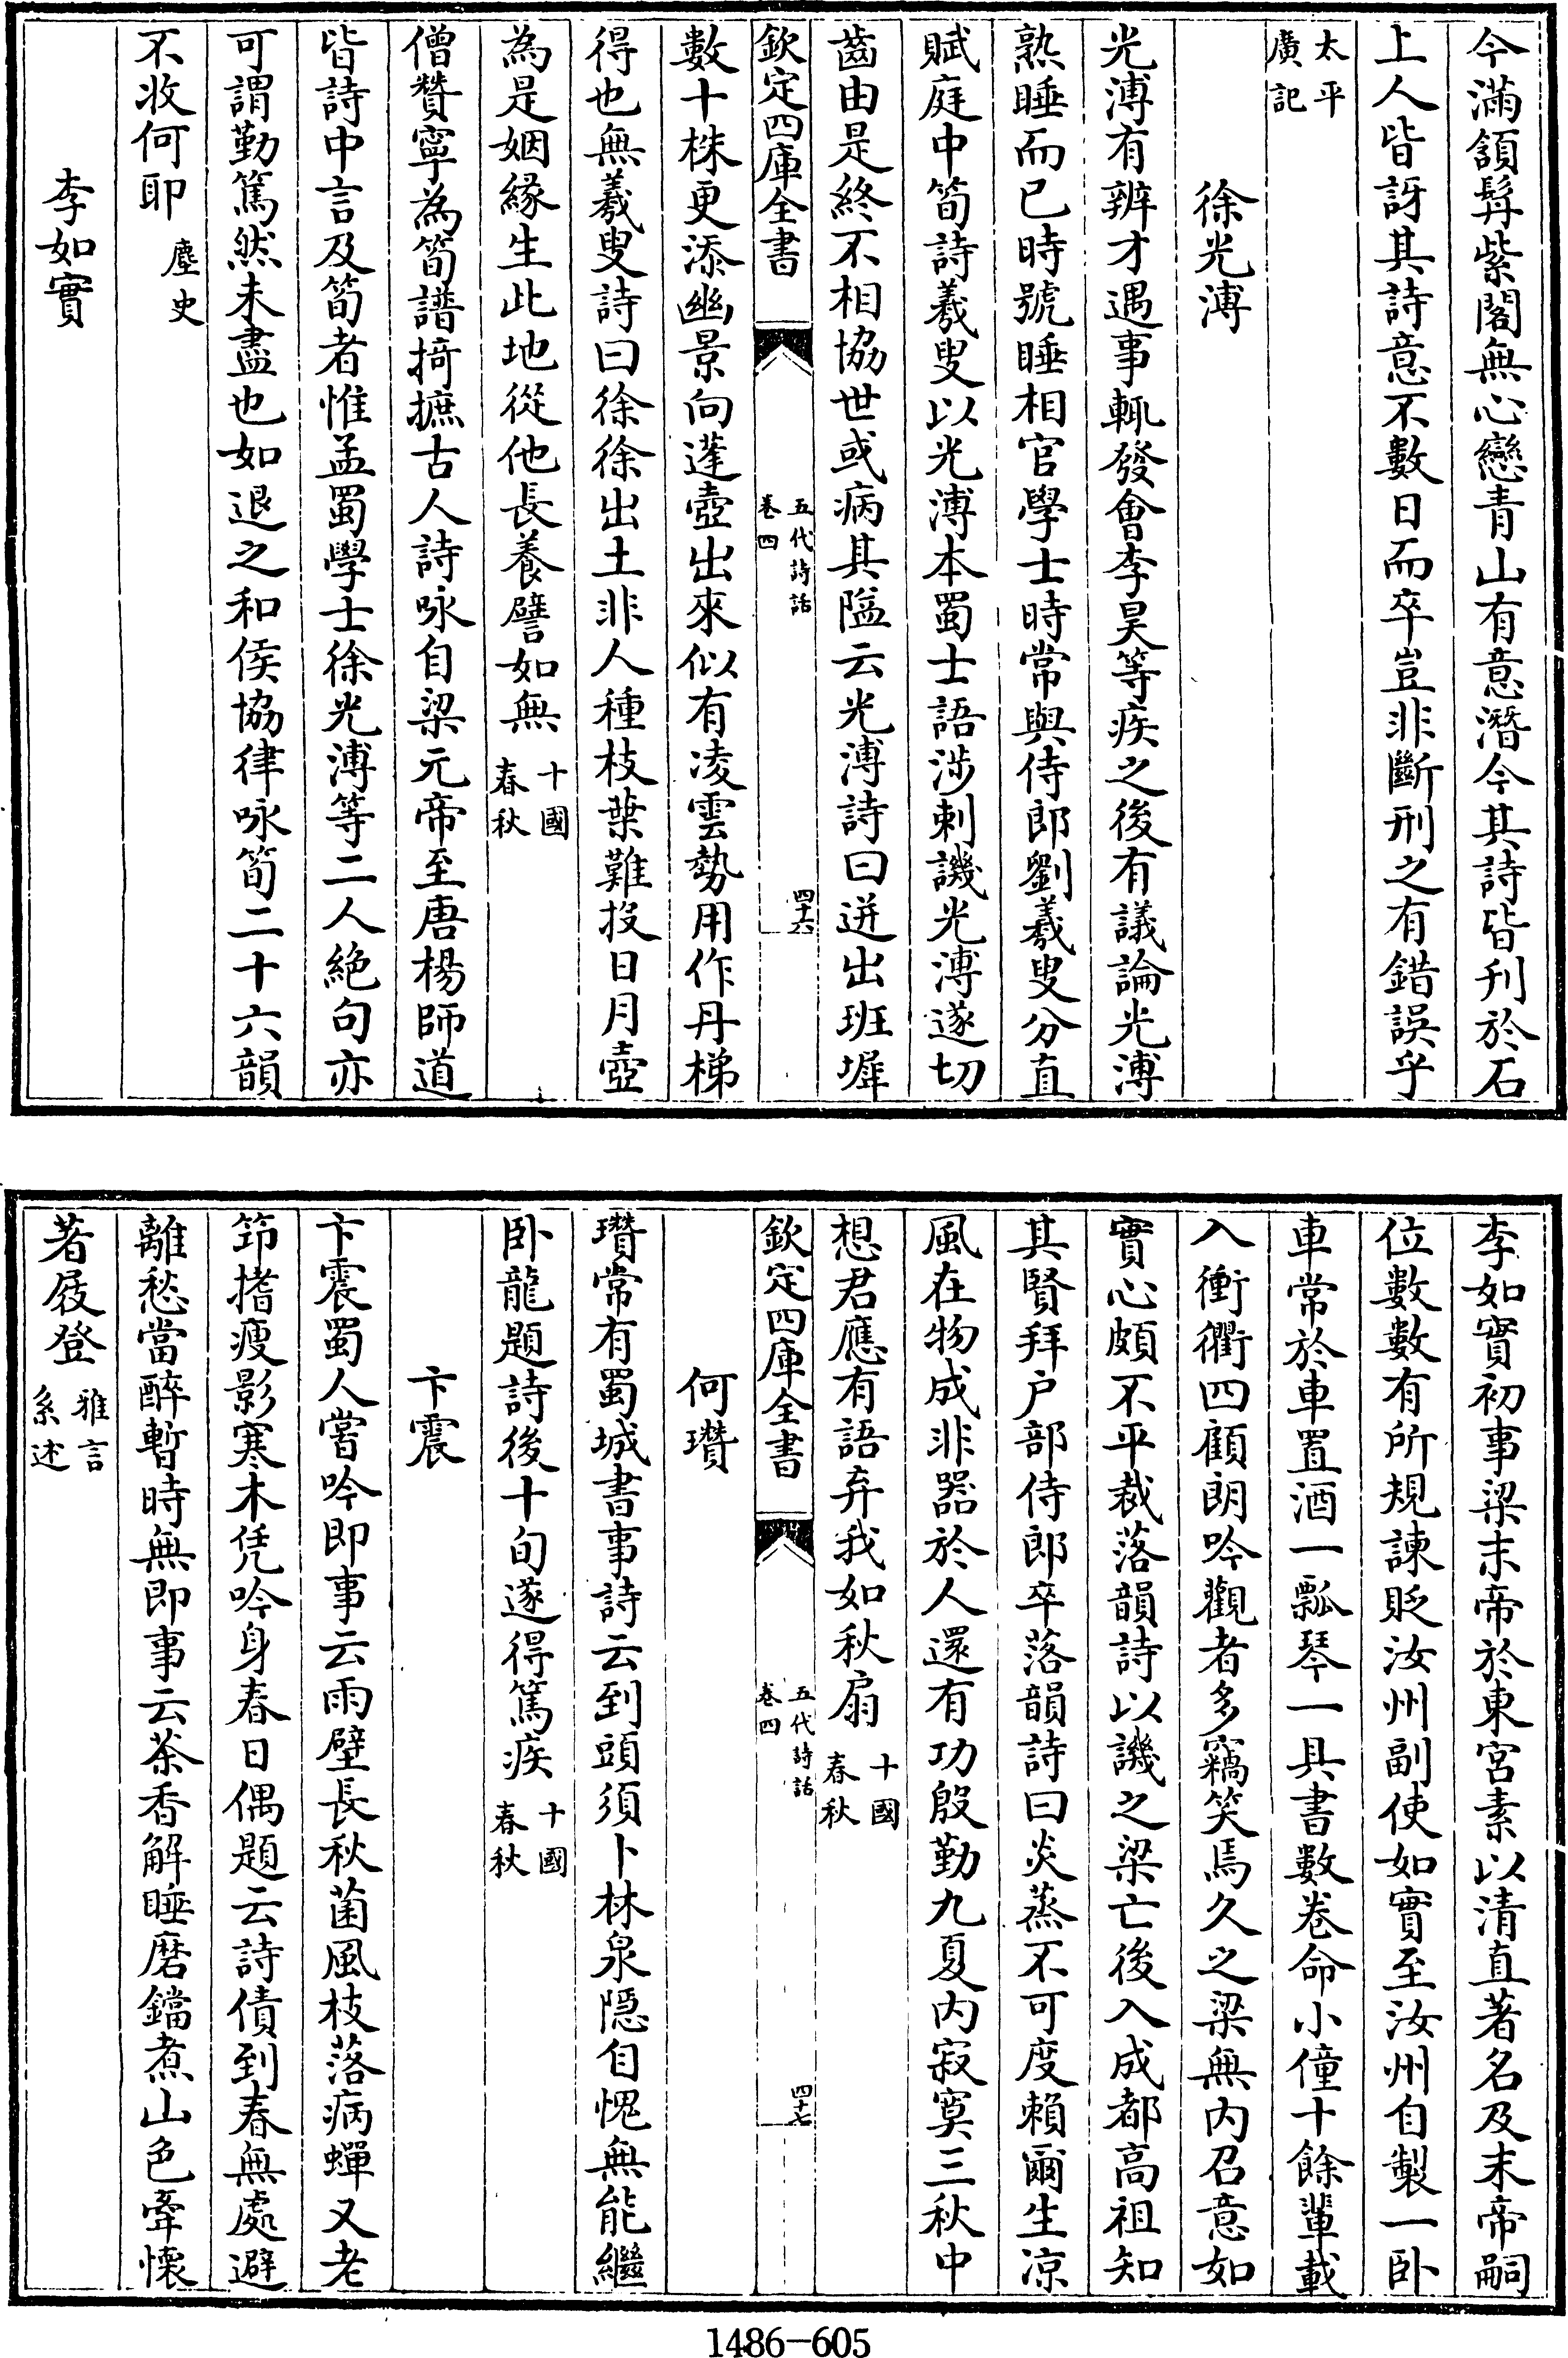 今滿頷髯紫閣無心戀青山有意潛今其詩皆刋於石
上人皆訝其詩意不數日而卒豈非斷刑之有錯誤乎
太平
廣記
徐光溥
光溥有辨才遇事輒發會李昊等疾之後有議論光溥
熟睡而已時號睡相官學士時常與侍郎劉羲叟分直
賦庭中筍詩羲叟以光溥本蜀士語涉刺譏光溥遂切
齒由是終不相協世或病其隘云光溥詩曰迸出班墀
欽定四庫全書
五代詩話
卷四
四十六
數十株更添幽景向蓬壺出來似有凌雲勢用作丹梯
得也無羲叟詩曰徐徐出土非人種枝葉難投日月壺
為是姻緣生此地從他長養譬如無
十國
春秋
僧贊寧為筍譜掎摭古人詩咏自梁元帝至唐楊師道
皆詩中言及筍者惟孟蜀學士徐光溥等二人絶句亦
可謂勤篤然未盡也如退之和侯協律咏筍二十六韻
不收何耶
麈史
李如實
李如實初事梁末帝於東宮素以清直著名及末帝嗣
位數數有所規諫貶汝州副使如實至汝州自製一卧
車常於車置酒一瓢琴一具書數卷命小僮十餘輩載
入衝衢四顧朗吟觀者多竊笑焉久之梁無内召意如
實心頗不平裁落韻詩以譏之梁亡後入成都高祖知
其賢拜户部侍郎卒落韻詩曰炎蒸不可度賴爾生凉
風在物成非器於人還有功殷勤九夏内寂寞三秋中
想君應有語弃我如秋扇
十國
春秋
欽定四庫全書
五代詩話
卷四
四十七
何瓚
瓚常有蜀城書事詩云到頭須卜林泉隠自愧無能繼
卧龍題詩後十旬遂得篤疾
十國
春秋
卞震
卞震蜀人嘗吟即事云雨壁長秋菌風枝落病蟬又老
筇揩瘦影寒木凭吟身春日偶題云詩債到春無處避
離愁當醉暫時無即事云茶香解睡磨鐺煮山色牽懷
著屐登
雅言
系述
1486-605